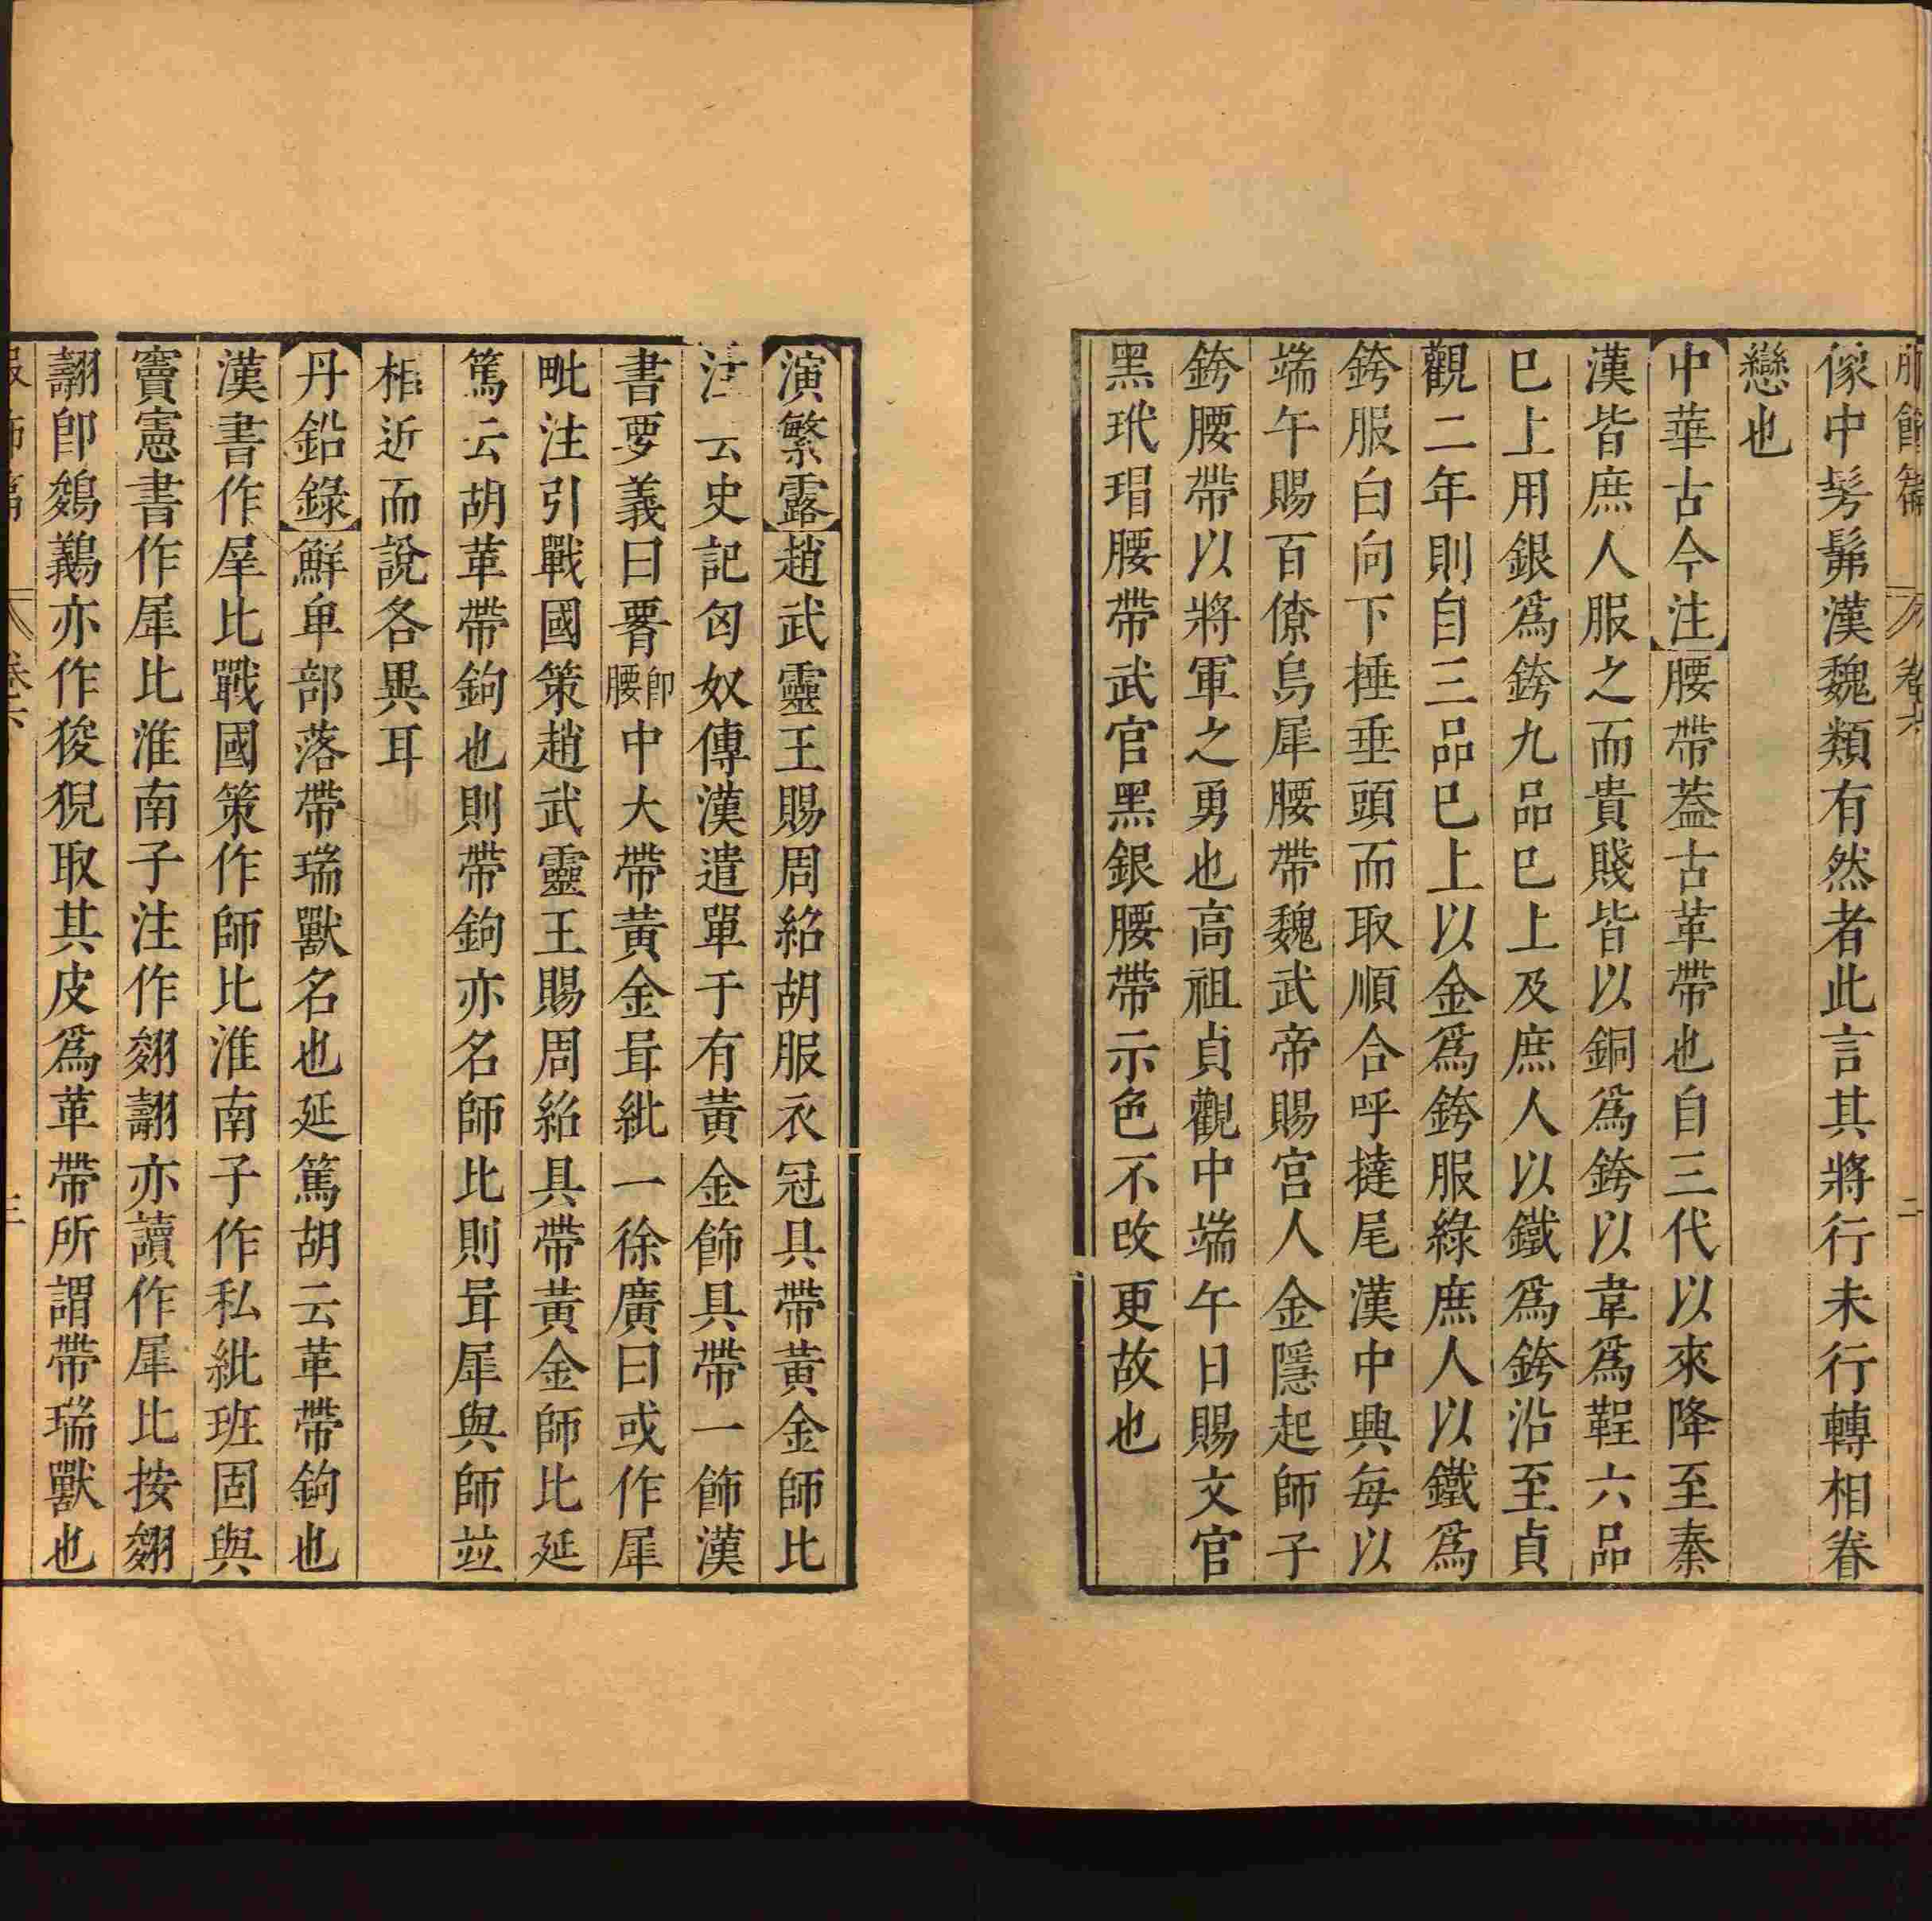 服飾篇 卷六 二
像中髣髴漢魏類有然者此言其將行未行轉相眷
戀也
中華古今注腰帶葢古革帶也自三代以來降至秦
漢皆庶人服之而貴賤皆以銅爲銙以韋爲鞓六品
巳上用銀爲銙九品巳上及庶人以鐵爲銙沿至貞
觀二年則自三品巳上以金爲銙服綠庶人以鐵爲
銙服白向下捶垂頭而取順合呼撻尾漢中興每以
端午賜百僚烏犀腰帶魏武帝賜宮人金隱起師子
銙腰帶以將軍之勇也高祖貞觀中端午日賜文官
黑玳瑁腰帶武官黑銀腰帶示色不改更故也
演繁露趙武靈王賜周紹胡服衣冠具帶黃金師比
注云史記匈奴傳漢遣單于有黃金飾具帶一飾漢
書要義曰䙅卽腰中大帶黃金胥紕一徐廣曰或作犀
毗注引戰國策趙武靈王賜周紹具帶黃金師比延
篤云胡革帶鉤也則帶鉤亦名師比則胥犀與師並
相近而說各異耳
丹鉛錄鮮卑部落帶瑞獸名也延篤胡云革帶鉤也
漢書作犀比戰國策作師比淮南子作私紕班固與
竇憲書作犀比淮南子注作䎂翿亦讀作犀比按䎂
翿卽鵕鸃亦作狻猊取其皮爲革帶所謂帶瑞獸也
服飾篇 卷六 三